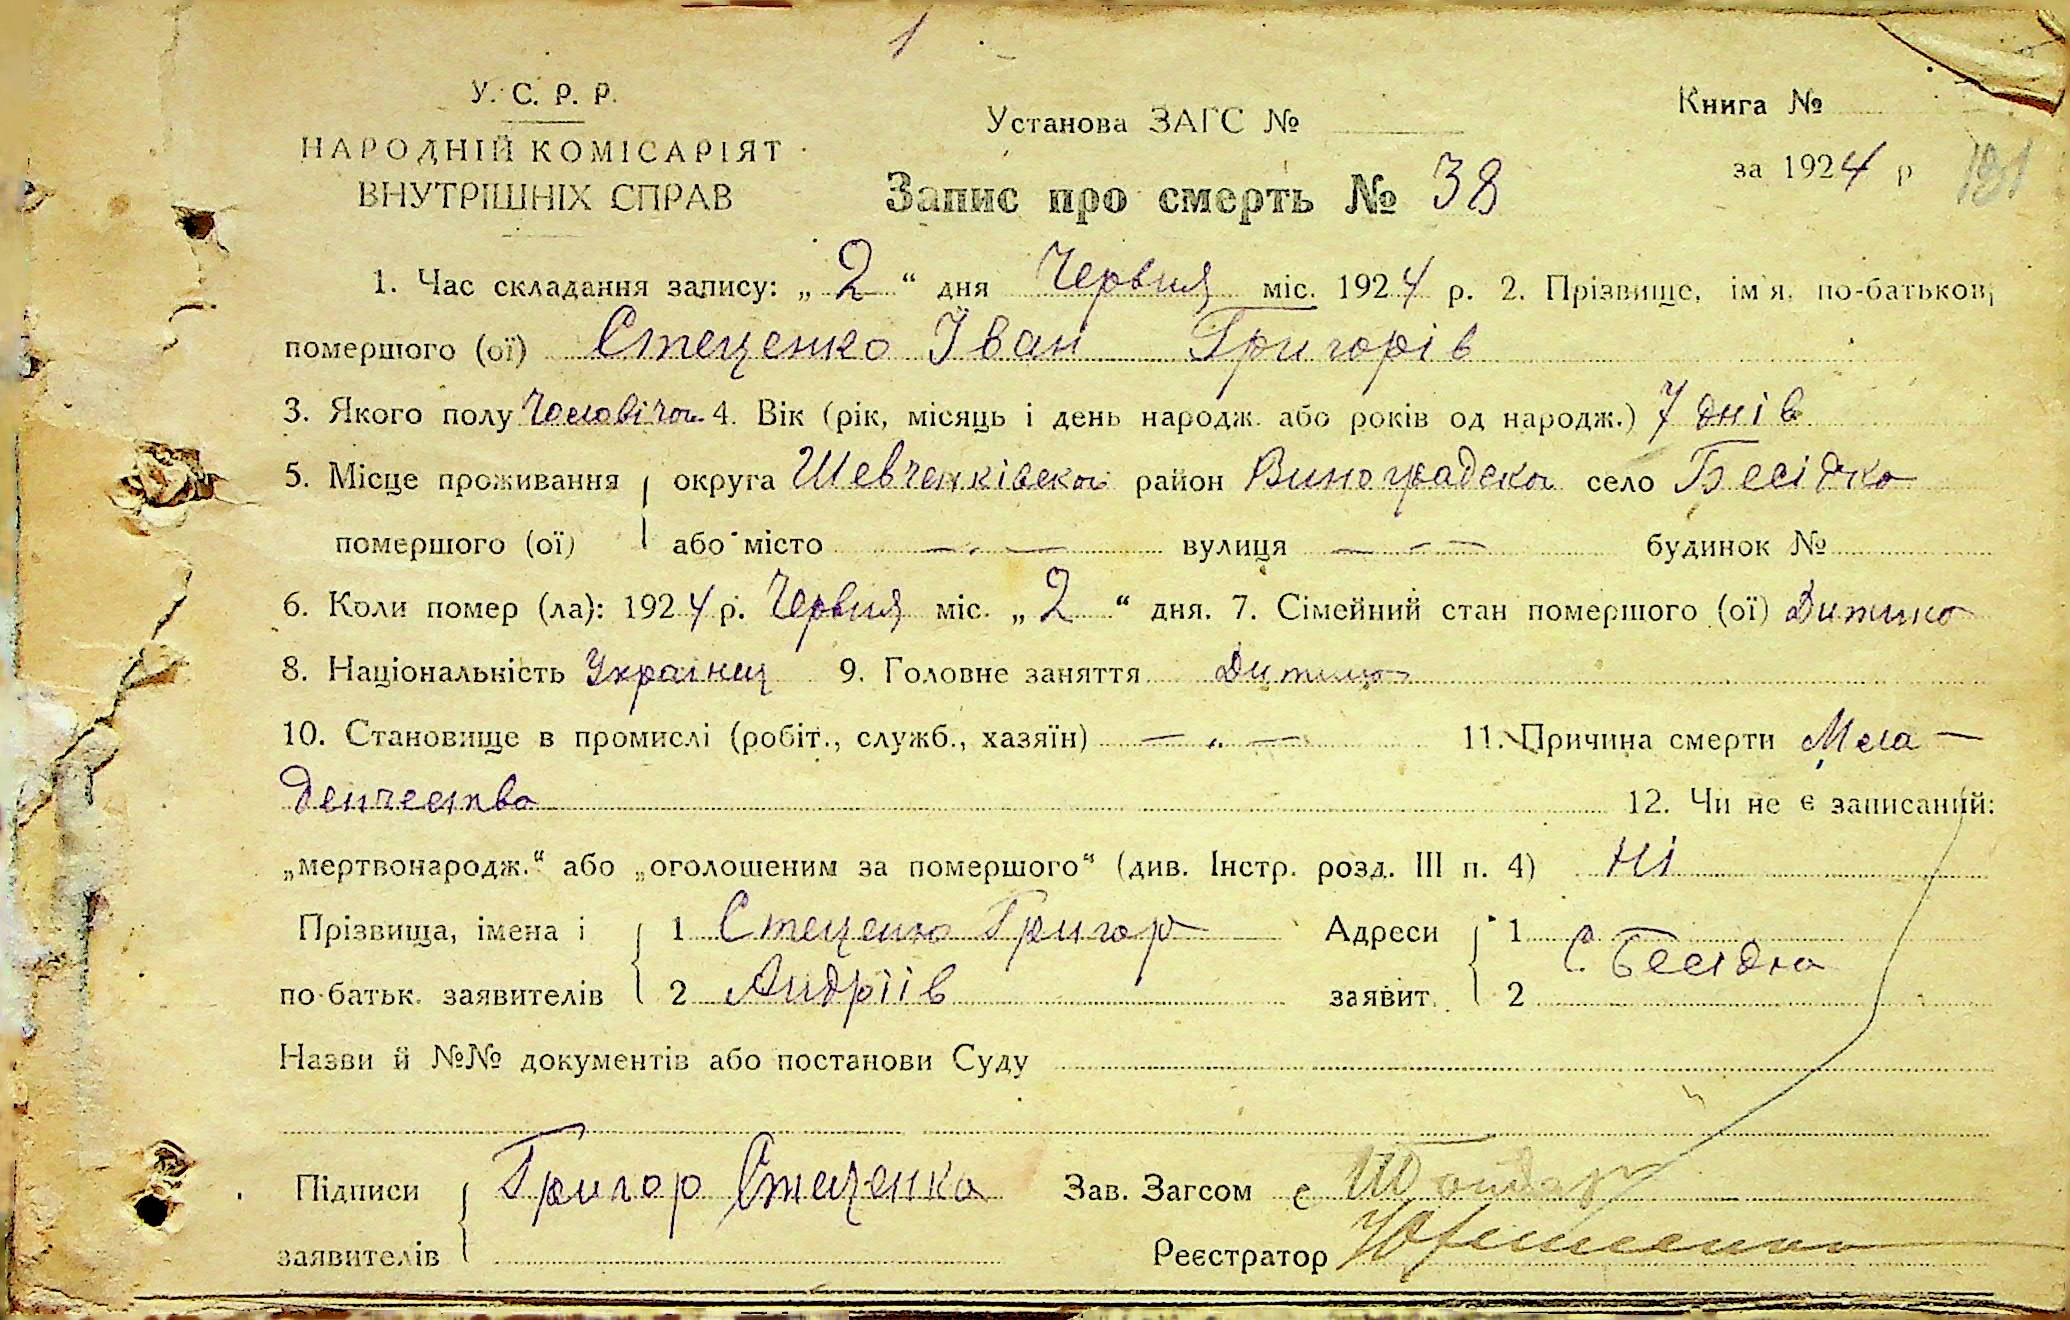 1
У. С. Р. Р.
НАРОДНІЙ КОМІСАРІЯТ
ВНУТРІШНІХ СПРАВ
Установа ЗАГС №
Книга №
за 1924 р
181
Запис про смерть № 38
1. Час складання запису: „ 2 “ дня Червня міс. 1924 р. 2. Прізвище, ім'я, по-батькові
помершого (ої) Стеценко Іван Григорів
3. Якого полу Чоловіча 4. Вік (рік, місяць і день народж. або років од народж.) 7 днів
5. Місце проживання округа Шевченківська район Виноградска село Бесідка
помершого (ої) або місто — . — вулиця — - — будинок №
6. Коли помер (ла): 1924 р. Червня міс. „ 2 “ дня. 7. Сімейний стан помершого (ої) Дитина
8. Національність Українец 9. Головне заняття Дитина
10. Становище в промислі (робіт., служб., хазяїн) — „ — 11. Причина смерти Мла-
денчества 12. Чи не є записаний:
„мертвонародж.“ або „оголошеним за помершого“ (див. Інстр. розд. III п. 4) Ні
Прізвища, імена і 1 Стеценко Григор Адреси 1 С. Бесідка
по-батьк. заявителів 2 Андріїв заявит. 2
Назви й №№ документів або постанови Суду
Підписи Григор Стеценко Зав. Загсом
заявителів Реєстратор